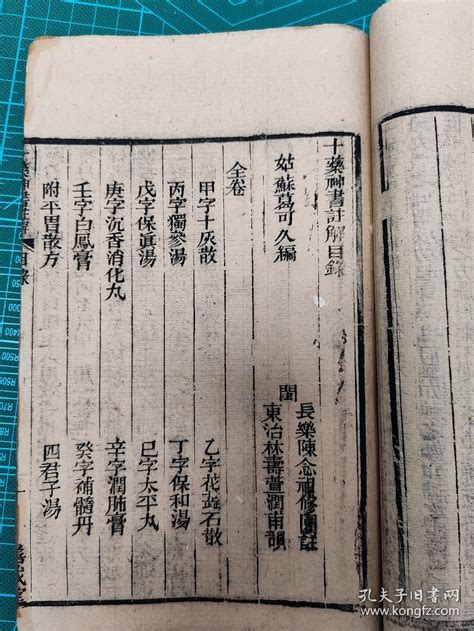 十藥神書註解目錄
姑蘇葛可久編
閩
長樂陳念祖修園註
東冶林壽萱潤甫韻
全卷
甲字十灰散
乙字花蕊石散
丙字獨參湯
丁字保和湯
戊字保眞湯
巳字太平丸
庚字沉香消化丸
辛字潤肺膏
壬字白鳳膏
癸字補髓丹
附平胃散方
四君子湯
藥神書註解
目錄
一
孔夫子旧书网
http://www.kongfz.com